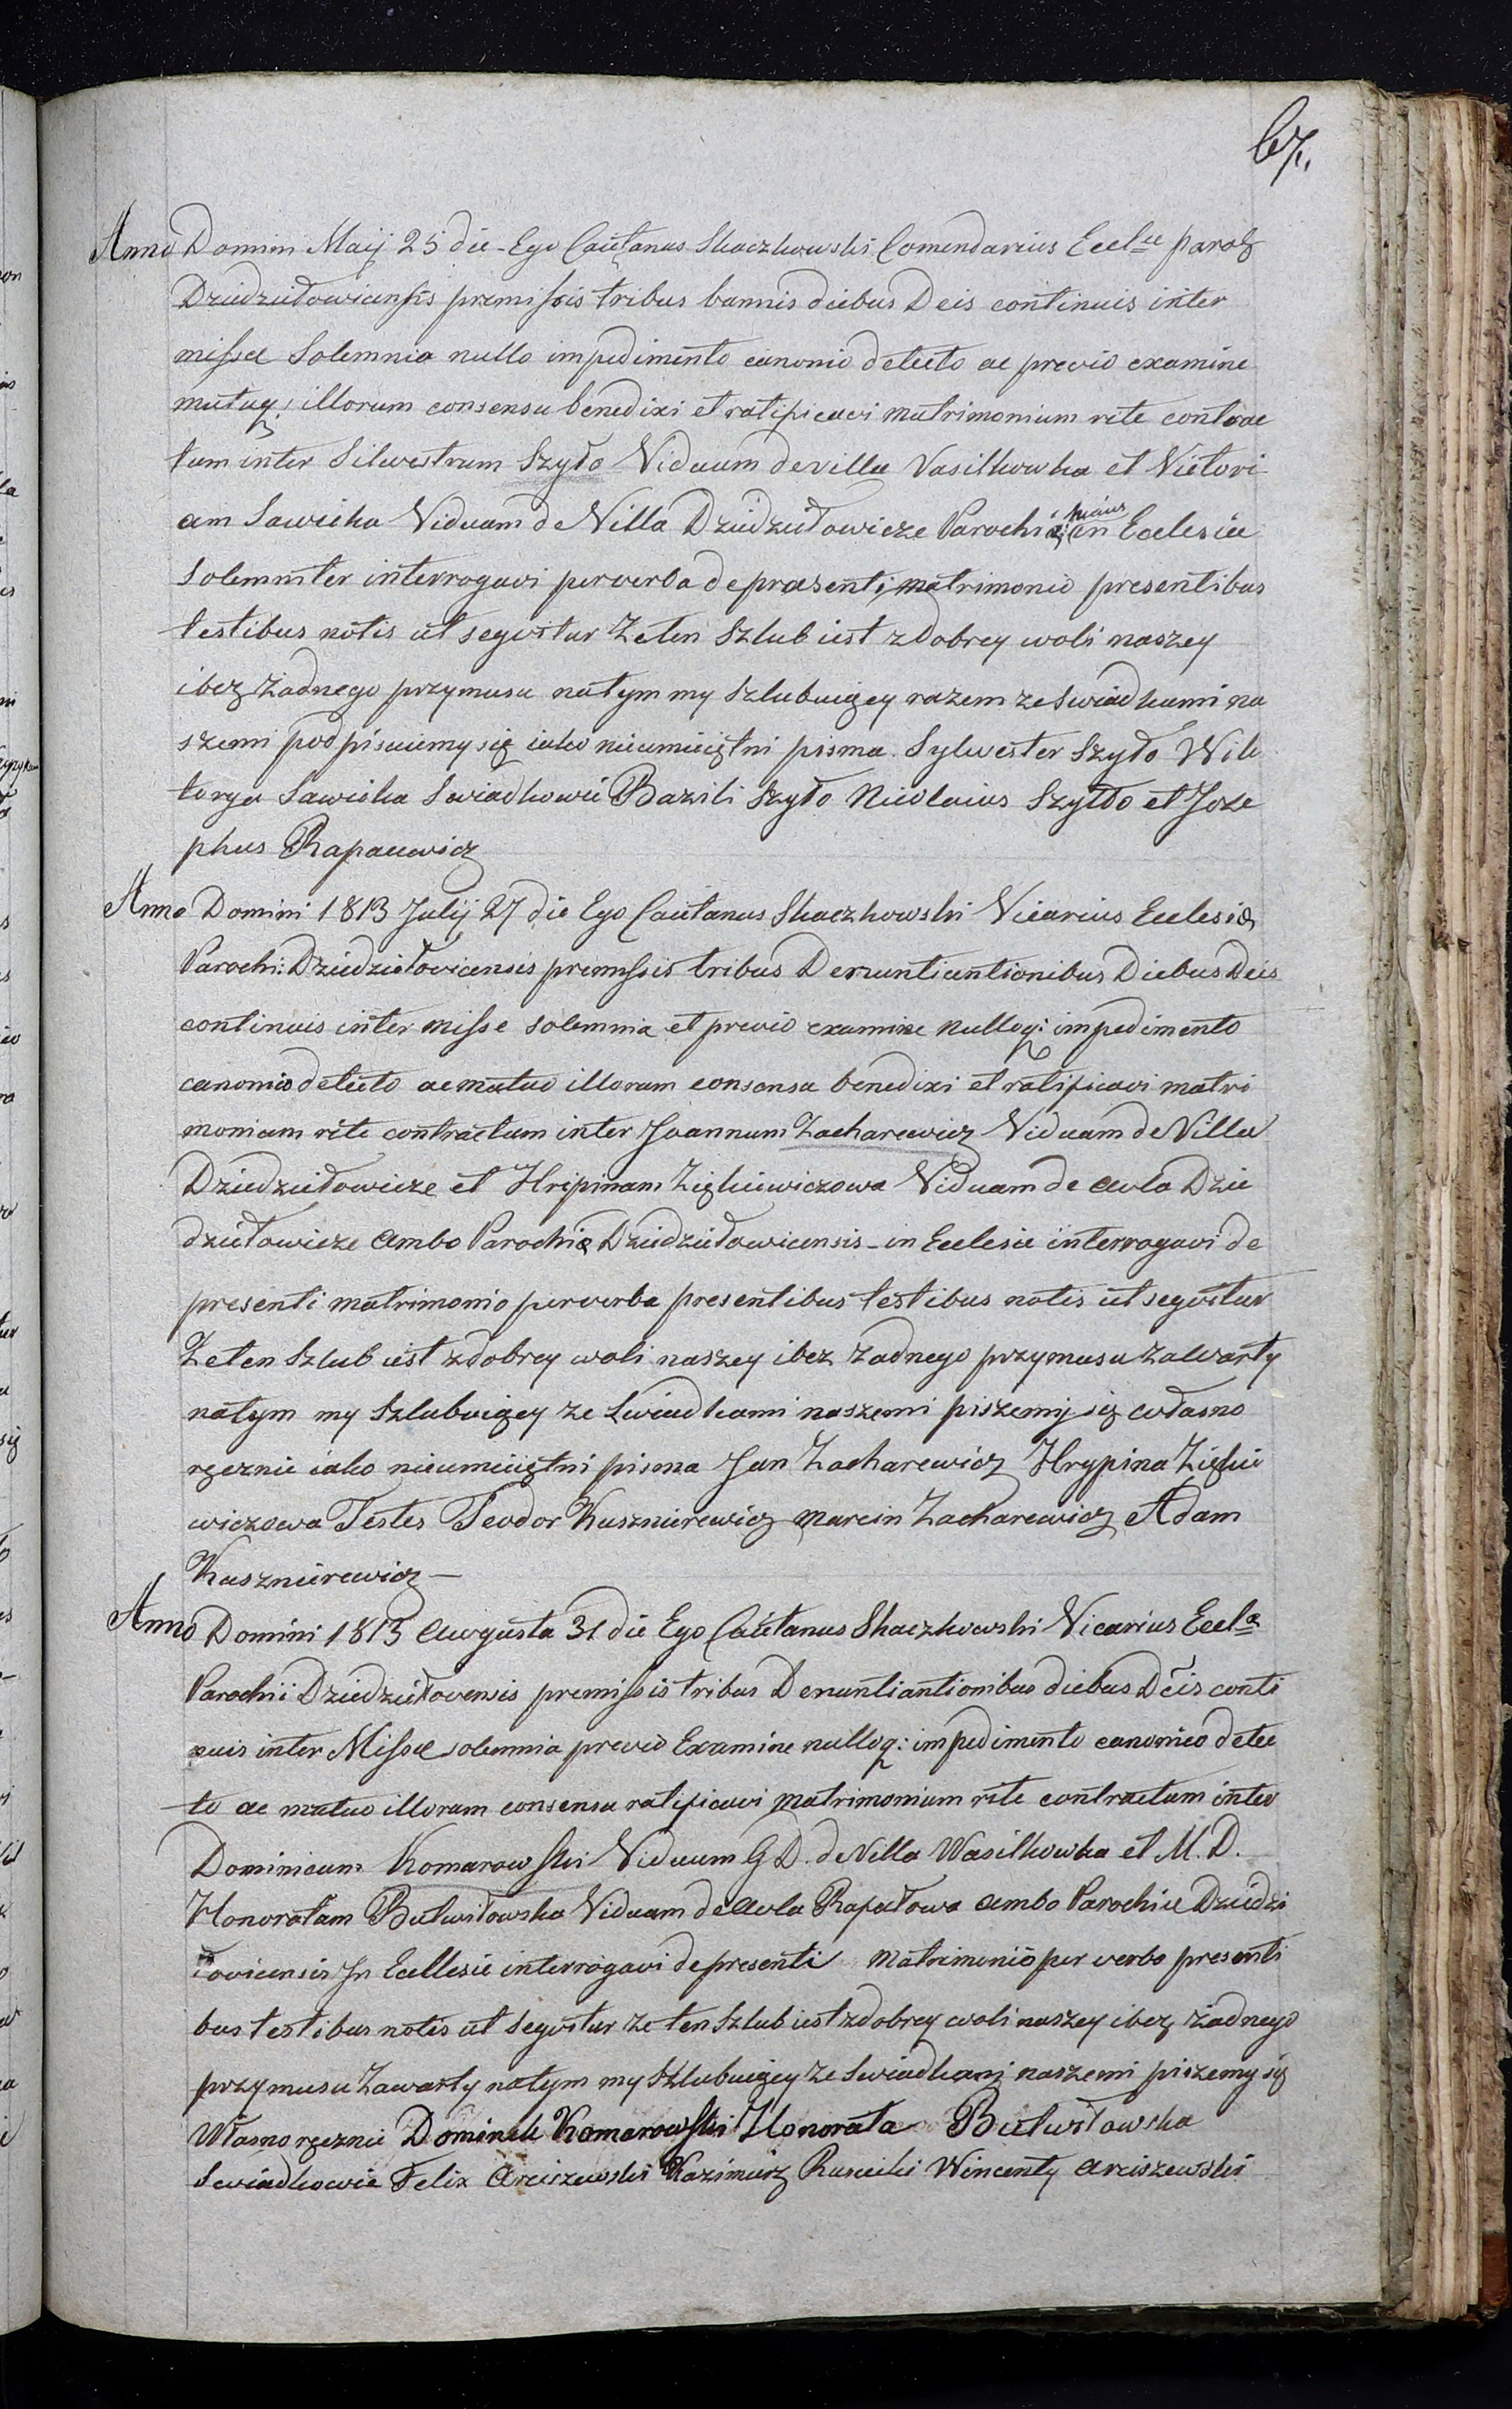 67.
Anno Domini Maij 25 die - Ego Caietanus Skaczkowski Comendarius Eccl<sup>ae</sup> paroh
Dziedziłowicensis premissis tribus bannis diebus D eis continuis inter
missa Solemnia nullo impedimento canonio detecto ac previo examine
mutuq: illorum consensu benedixi et ratificavi matrimonium rite contrac
tum inter Silvestrum Szyło Viduum de villa Vasilkowka et Victori
am Sawicka Viduam de Villa Dziedziłowicze Parochiæ huius in Eclesia
Solemniter interrogavi per verba de præsenti matrimonio presentibus
testibus notis ut seqvitur Ze ten Szlub iest z dobrey woli naszey
i bez żadnego przymusu na tym my szlubuiący razem ze Swiadkami na
szemi podpisuiemy się iako nieumieiętni pisma. Sylwester Szyło Wik
torya Sawicka Swiadkowie Bazili Szyło Nicolaius Szyłło et Joze
phus Rapacewicz
Anno Domini 1813 Julij 27 die Ego Caietanus Skaczkowski Vicarius Eclesiæ
Parochi: Dziedziełovicensis premissis tribus Denuntiantionibus Diebus Deis
continuis inter misse solemnia et previo examine nulloq: impedimento
canonico detecto ac mutuo illorum consensu benedixi et ratificavi matri
monium rite contractum inter Joannum Zacharewicz Viduum de Villa
Dziedziełowicze et Hripinam Ziękiewiczowa Viduam de Aula Dzie
dziełowicze Ambo Parochiæ Dziedziełowicensis - in Eclesia interrogavi de
presenti matrimonio per verba presentibus testibus notis ut seqvitur
Ze ten Szlub iest z dobrey woli naszey i bez żadnego przymusu zawarty
na tym my Szlubuiący ze Swiadkami naszemi piszemy się własno
ręcznie iako nieumieiętni pisma Jan Zacharewicz Hrypina Ziękie
wiczowa Testes Teodor Kusznierewicz Marcin Zacharewicz Adam
Kusznierewicz —
Anno Domini 1813 Awgusta 31 die Ego Caietanus Skaczkowski Vicarius Eccl<sup>æ</sup>
Parochii Dziedziełovensis premissis tribus Denuntiantionibus diebus Deis conti
nuis inter Missæ solemnia previo Examine nulloq: impedimento canonico detec
to ac mutuo illorum consensu ratificavi matrimonium rite contractum inter
Dominicum Komarowski Viduum G D. de Villa Wasilkowka et M. D.
Honoratam Butwiłowska Viduam de Aula Rapałowa Ambo Parochiæ Dziedzi
łovicensis In Ecllesie interrogavi de presenti Matrimonio per verbo presenti
bus testibus notis ut seqvitur że ten Szlub iest z dobrey woli naszey i bez żadnego
przymusu zawarty na tym my Szlubuiący ze Swiadkami naszemi piszemy się
własnoręcznie Dominik Komarowski Honorata Butwiłowska
Swiadkowie Felix Arciszewski Kazimierz Rusiecki Wincenty Arciszewski